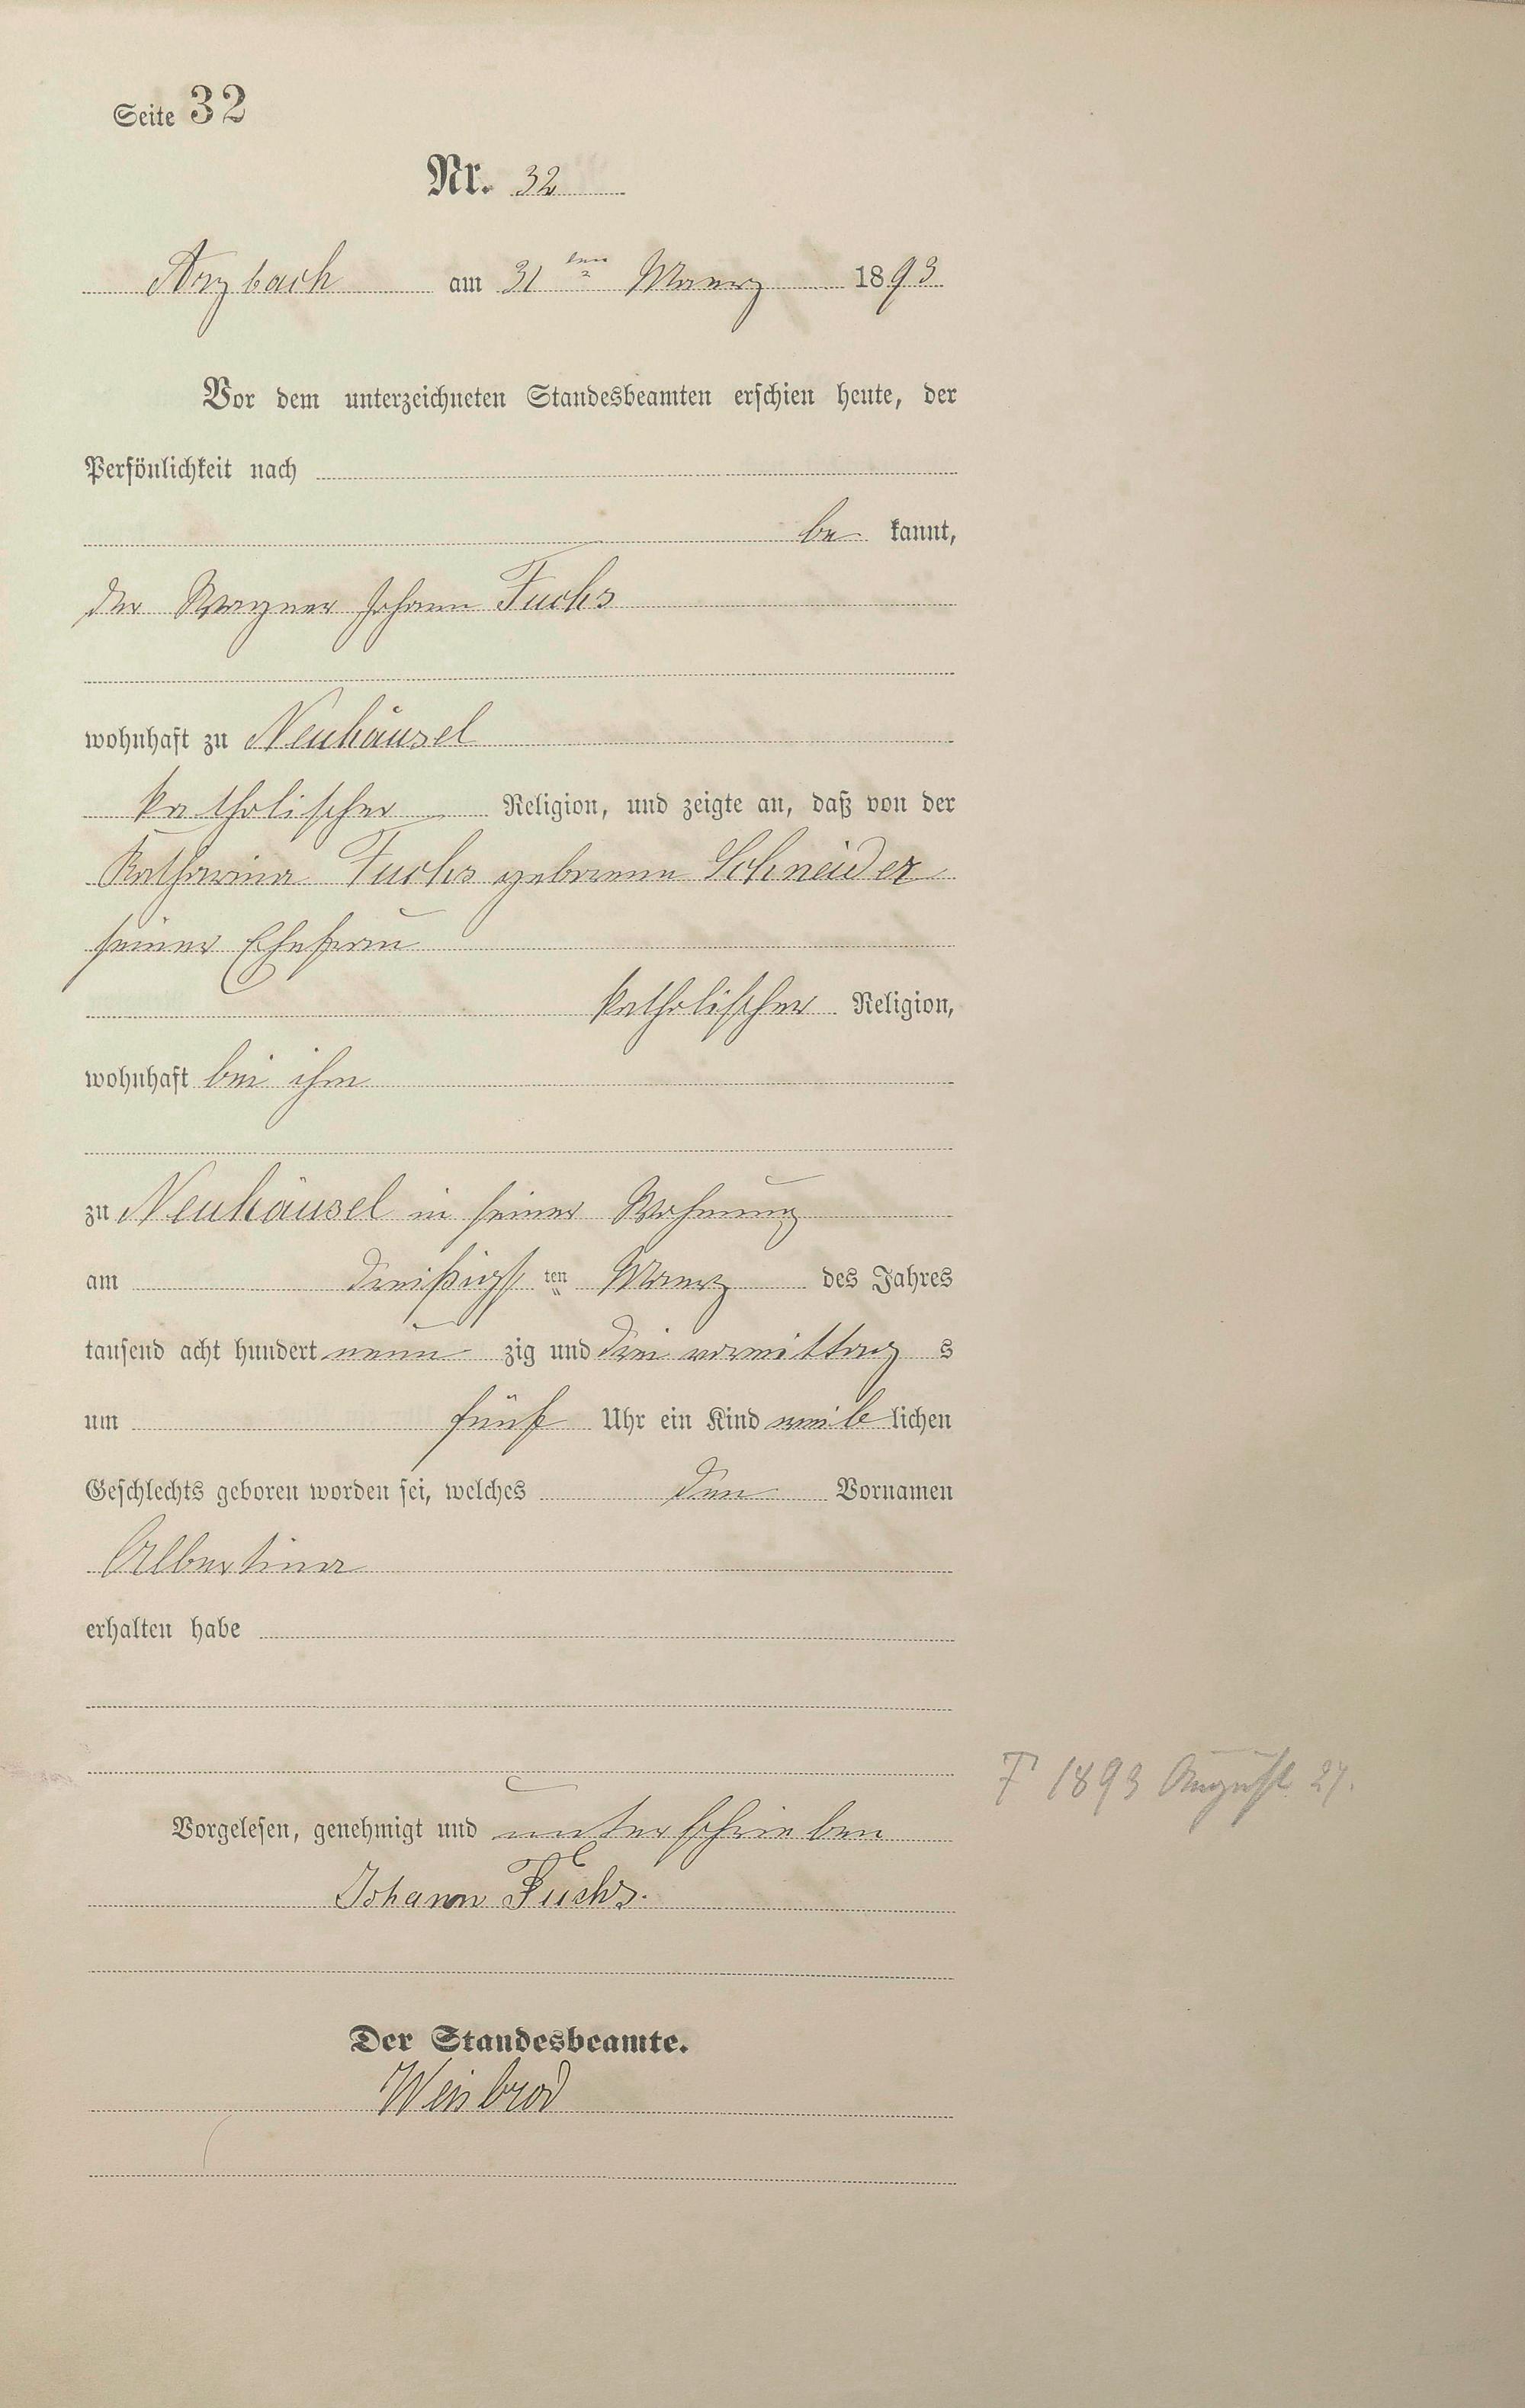 Seite 32
Nr. 32
Arzbach am 31 ten Maerz 1893
Vor dem unterzeichneten Standesbeamten erschien heute, der
Persönlichkeit nach
be kannt,
der Wagner Johann Fuchs
wohnhaft zu Neuhäusel
katholischer Religion, und zeigte an, daß von der
Katharina Fuchs geborenen Schneider
seiner Ehefrau
katholischer Religion,
wohnhaft bei ihm
zu Neuhäusel in seiner Wohnung
am dreißigs ten Maerz des Jahres
tausend acht hundert neun zig und drei vormittag s
um fünf Uhr ein Kind weib lichen
Geschlechts geboren worden sei, welches den Vornamen
Albertina
erhalten habe
† 1893 August 27.
Vorgelesen, genehmigt und unterschrieben
Johann Fuchs.
Der Standesbeamte.
Weisbrod